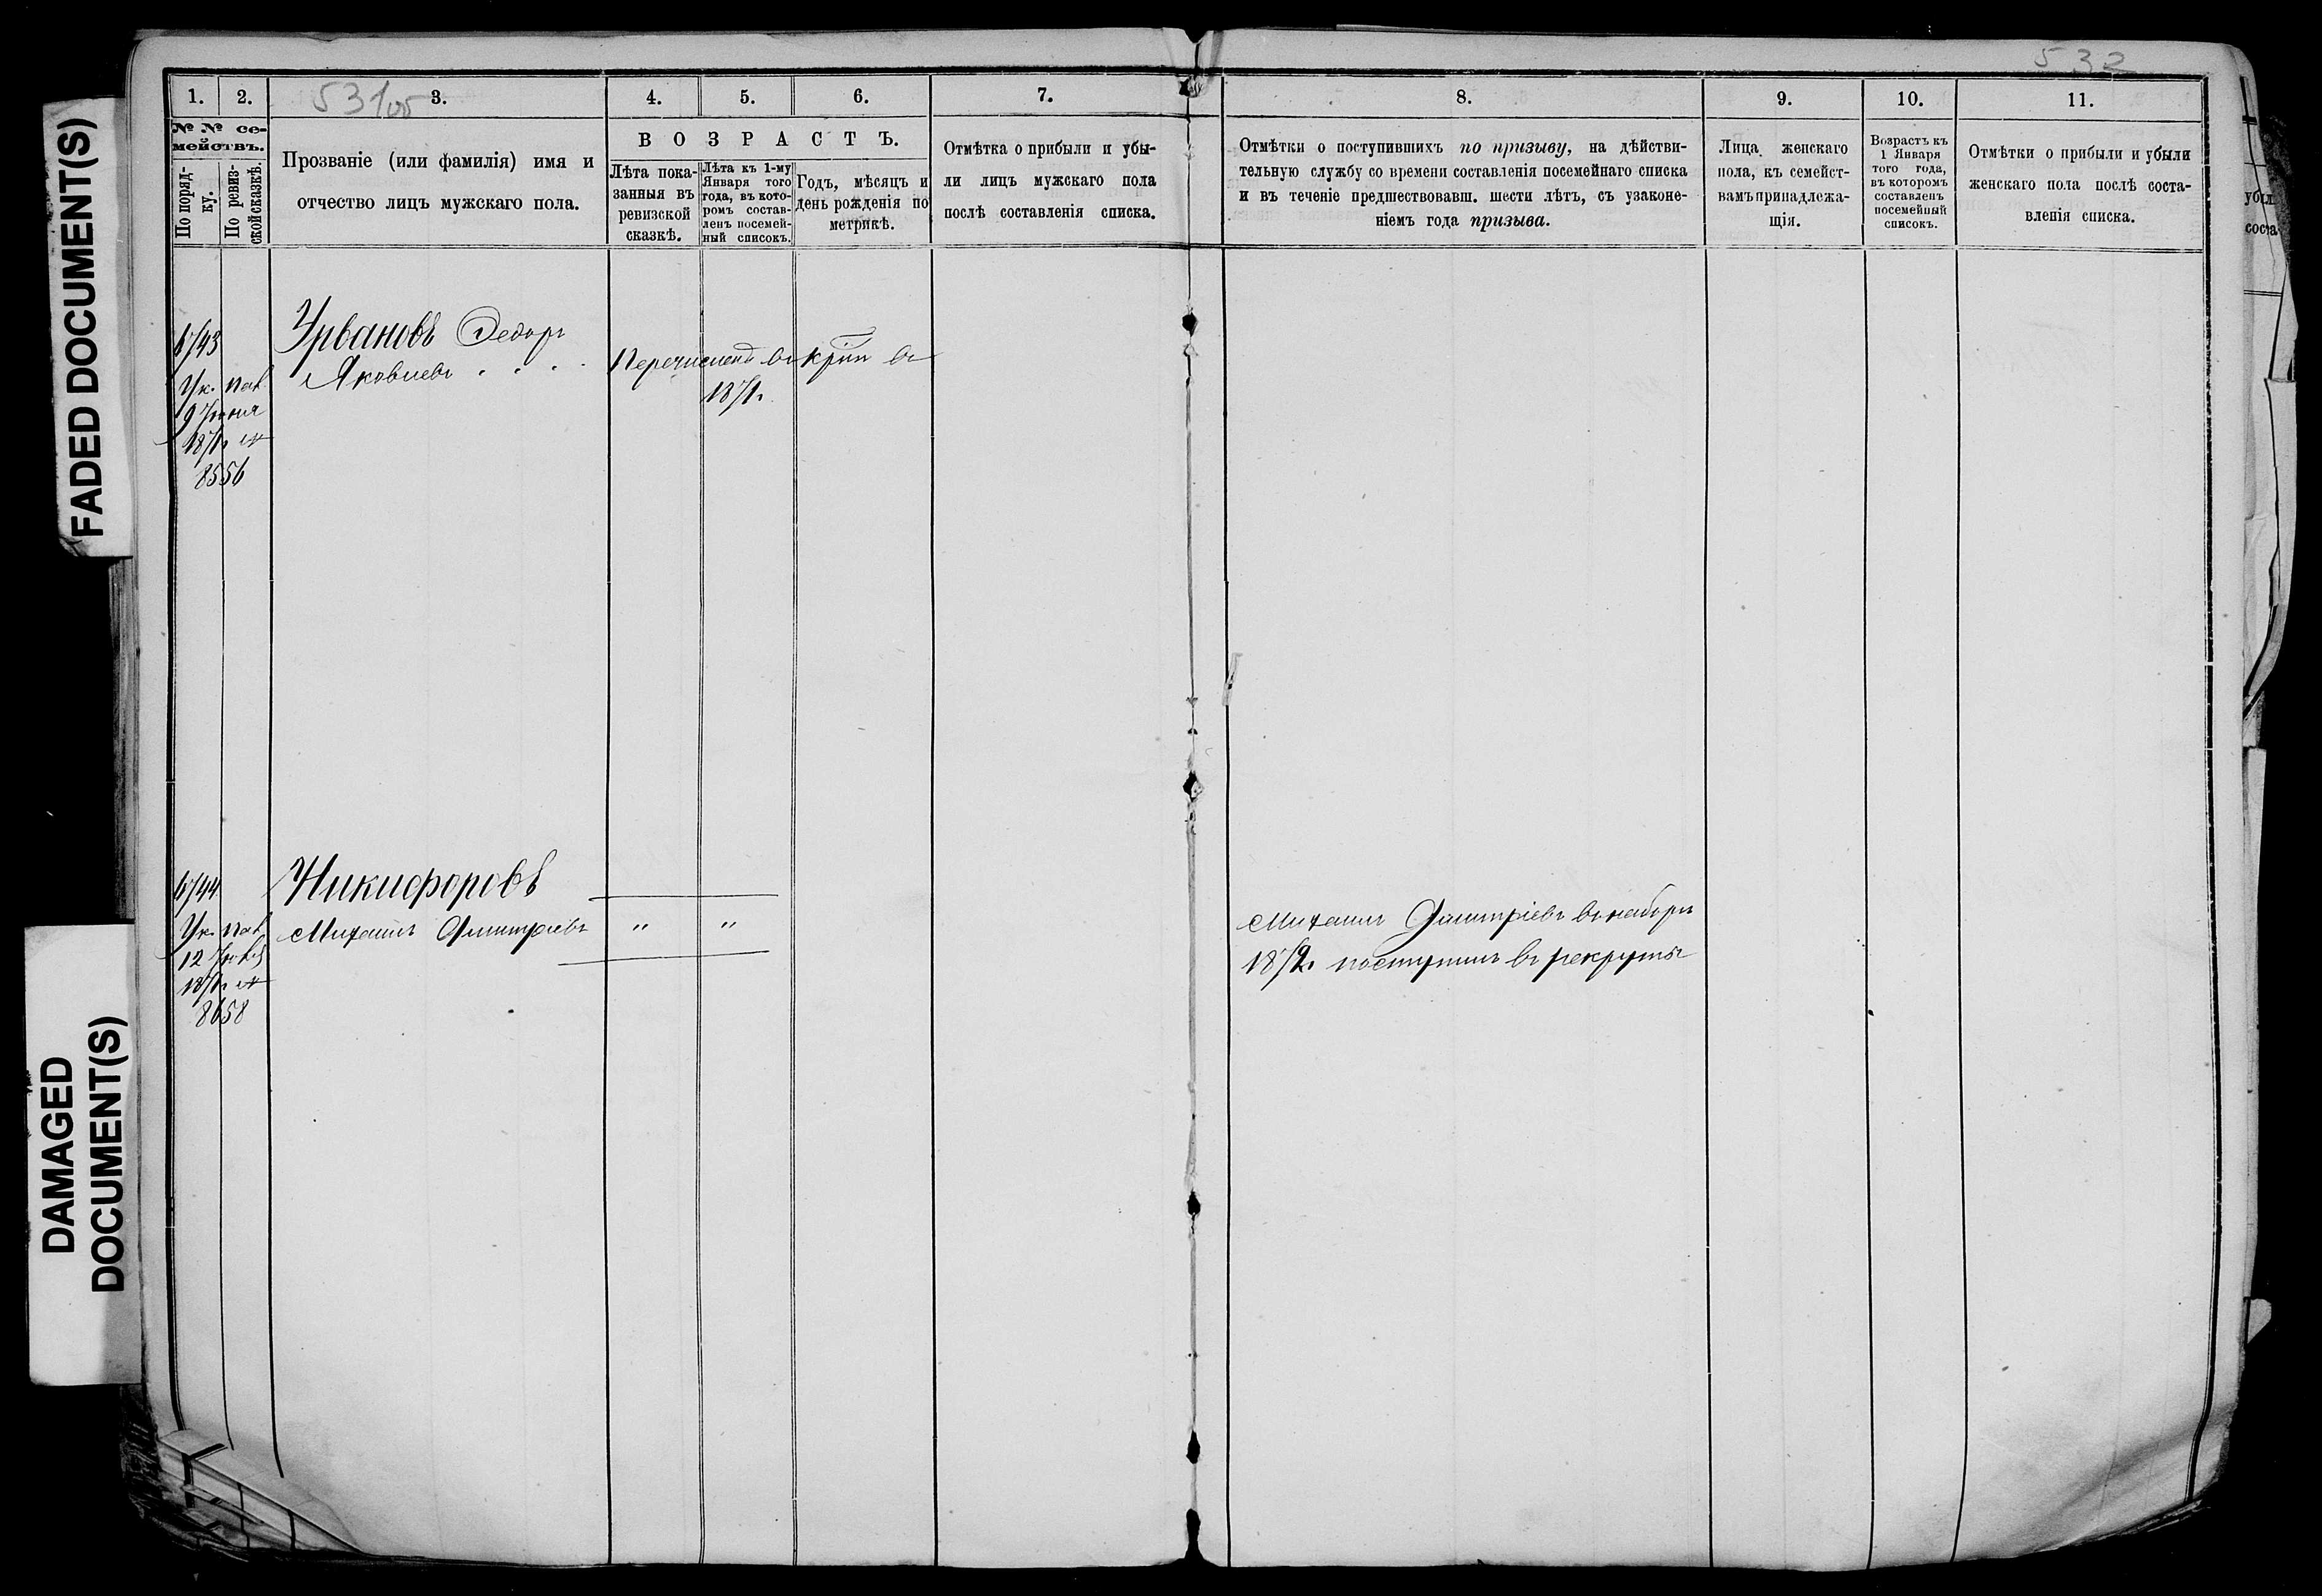 FADED DOCUMENT(S)
DAMAGED
DOCUMENT(S)
531об
532
1.
2.
3.
4.
5.
6.
7.
8.
9.
10.
11.
№ № се-
мействъ.
По поряд-
ку.
По ревиз-
ской сказкѣ.
Прозваніе (или фамилія) имя и
отчество лицъ мужскаго пола.
ВОЗРАСТЪ.
Лѣта пока-
занныя въ
ревизской
сказкѣ.
Лѣта къ 1-му
Января того
года, въ кото-
ромъ состав-
ленъ посемей-
ный списокъ.
Годъ, мѣсяцъ и
день рожденія по
метрикѣ.
Отмѣтка о прибыли и убы-
ли лицъ мужскаго пола
послѣ составленія списка.
Отмѣтки о поступившихъ по призыву, на дѣйстви-
тельную службу со времени составленія посемейнаго списка
и въ теченіе предшествовавш. шести лѣтъ, съ узаконе-
ніемъ года призыва.
Лица женскаго
пола, къ семейст-
вамъ принадлежа-
щія.
Возрастъ къ
1 Января
того года,
въ которомъ
составленъ
посемейный
списокъ.
Отмѣтки о прибыли и убыли
женскаго пола послѣ соста-
вленія списка.
убыл
соста
Урвановъ Федоръ
Яковлевъ
Перечисленъ въ въ
187 г.
Ук. пал.
9 Іюня
187 г №
8556
Никифоровъ
Ук. пал.
Михаилъ Дмитріевъ " "
12
187 г №
8658
Михаилъ Дмитріевъ въ наборъ
1872 г. поступилъ въ рекруты